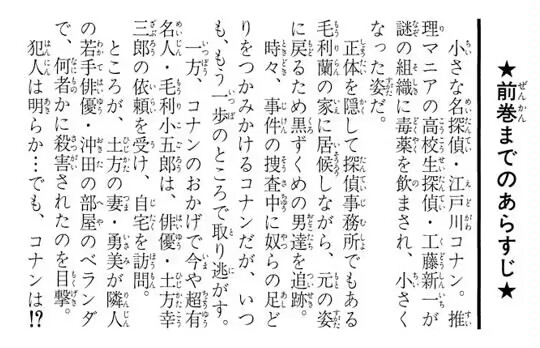 ★前巻までのあらすじ★
小さな名探偵・江戸川コナン。推
理マニアの高校生探偵・工藤新一が
謎の組織に毒薬を飲まされ、小さく
なった姿だ。
正体を隠して探偵事務所でもある
毛利蘭の家に居候しながら、元の姿
に戻るため黒ずくめの男達を追跡。
時々、事件の捜査中に奴らの足ど
りをつかみかけるコナンだが、いつ
も、もう一歩のところで取り逃がす。
一方、コナンのおかげで今や超有
名人・毛利小五郎は、俳優・土方幸
三郎の依頼を受け、自宅を訪問。
ところが、土方の妻・勇美が隣人
の若手俳優・沖田の部屋のベランダ
で、何者かに殺害されたのを目撃。
犯人は明らか…でも、コナンは!?